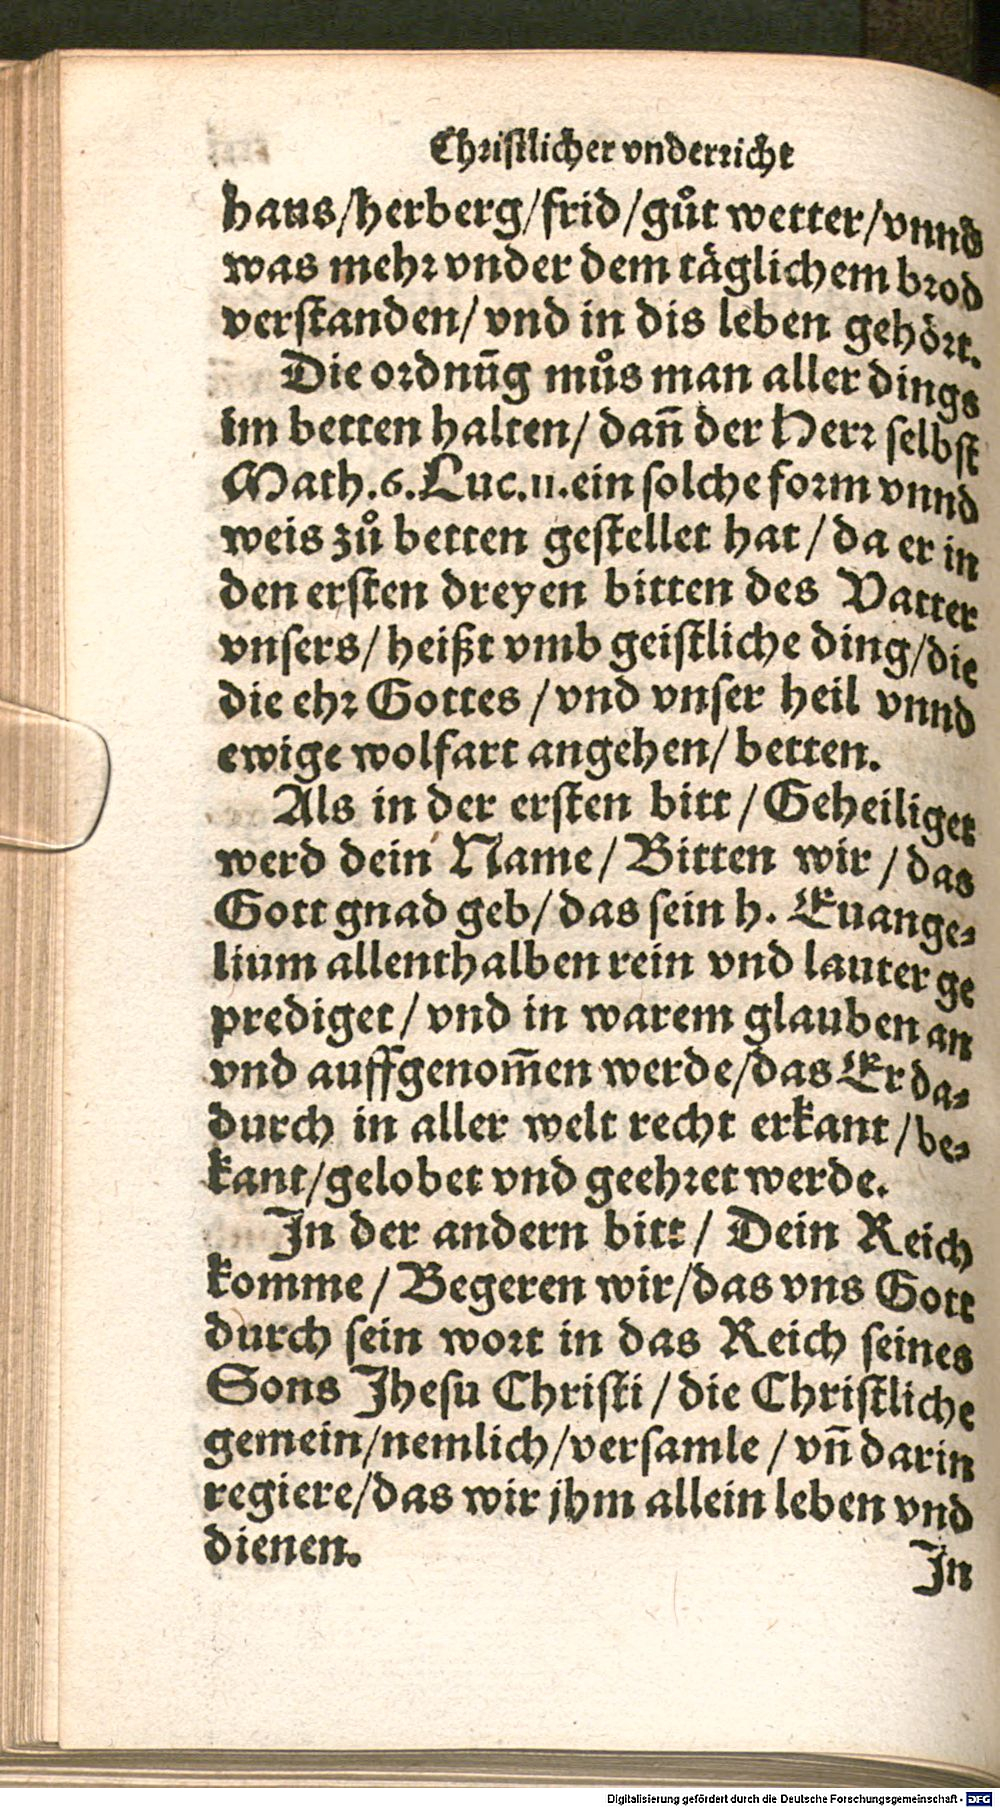 Christlicher vnderricht
haus/herberg/frid/gůt wetter/vnnd
was mehr vnder dem täglichem brod
verstanden/ vnd in dis leben gehört.
Die ordnūg můs man aller dings
im betten halten/ dañ der Herr selbst
Math.6.Luc.11.ein solche form vnnd
weis zů betten gestellet hat / da er in
den ersten dreyen bitten des Vatter
vnsers/ heißt vmb geistliche ding/die
die ehr Gottes / vnd vnser heil vnnd
ewige wolfart angehen/ betten.
Als in der ersten bitt / Geheiliget
werd dein Name/ Bitten wir / das
Gott gnad geb/ das sein h. Euange-
lium allenthalben rein vnd lauter ge
prediget / vnd in warem glauben an
vnd auffgenom̄en werde/das Er da-
durch in aller welt recht erkant /be-
kant/gelobet vnd geehret werde.
In der andern bitt / Dein Reich
komme / Begeren wir/das vns Gott
durch sein wort in das Reich seines
Sons Jhesu Christi / die Christliche
gemein/nemlich/versamle / vñ darin
regiere/das wir jhm allein leben vnd
dienen.
In
Digitalisierung gefördert durch die Deutsche Forschungsgemeinschaft - DFG